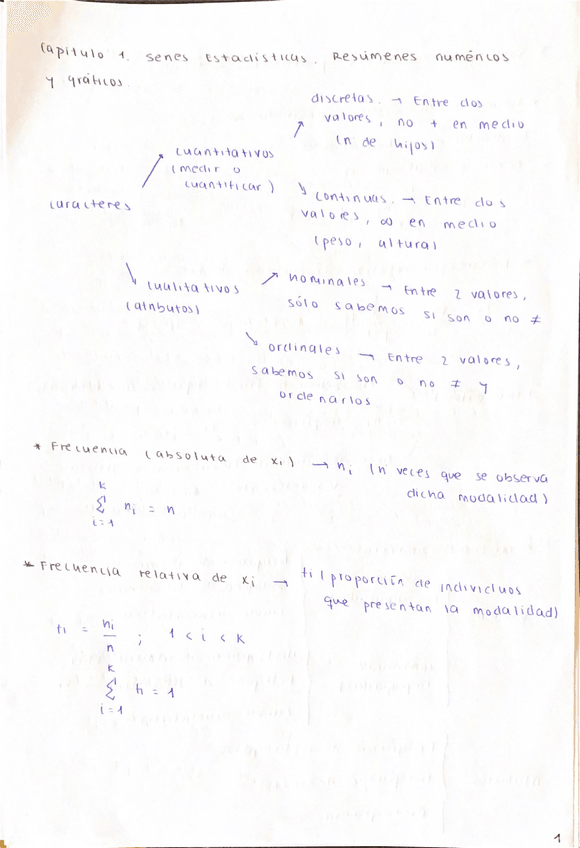 Capítulo 1. Series Estadísticas. Resúmenes numéricos
y gráficos.
discretas. → Entre dos
valores, no + en medio
(n de hijos)
cuantitativos
(medir o
cuantificar)
continuas. → Entre dos
valores, ∞ en medio
(peso, altura)
caracteres
cualitativos
(atributos)
nominales → Entre 2 valores,
sólo sabemos si son o no ≠
ordinales → Entre 2 valores,
sabemos si son o no ≠ y
ordenarlos
* Frecuencia (absoluta de xi) → ni (n veces que se observa
dicha modalidad)
k
∑ ni = n
i=1
* Frecuencia relativa de xi → fi (proporción de individuos
que presentan la modalidad)
fi = ni/n ; 1 < i < k
k
∑ fi = 1
i=1
1